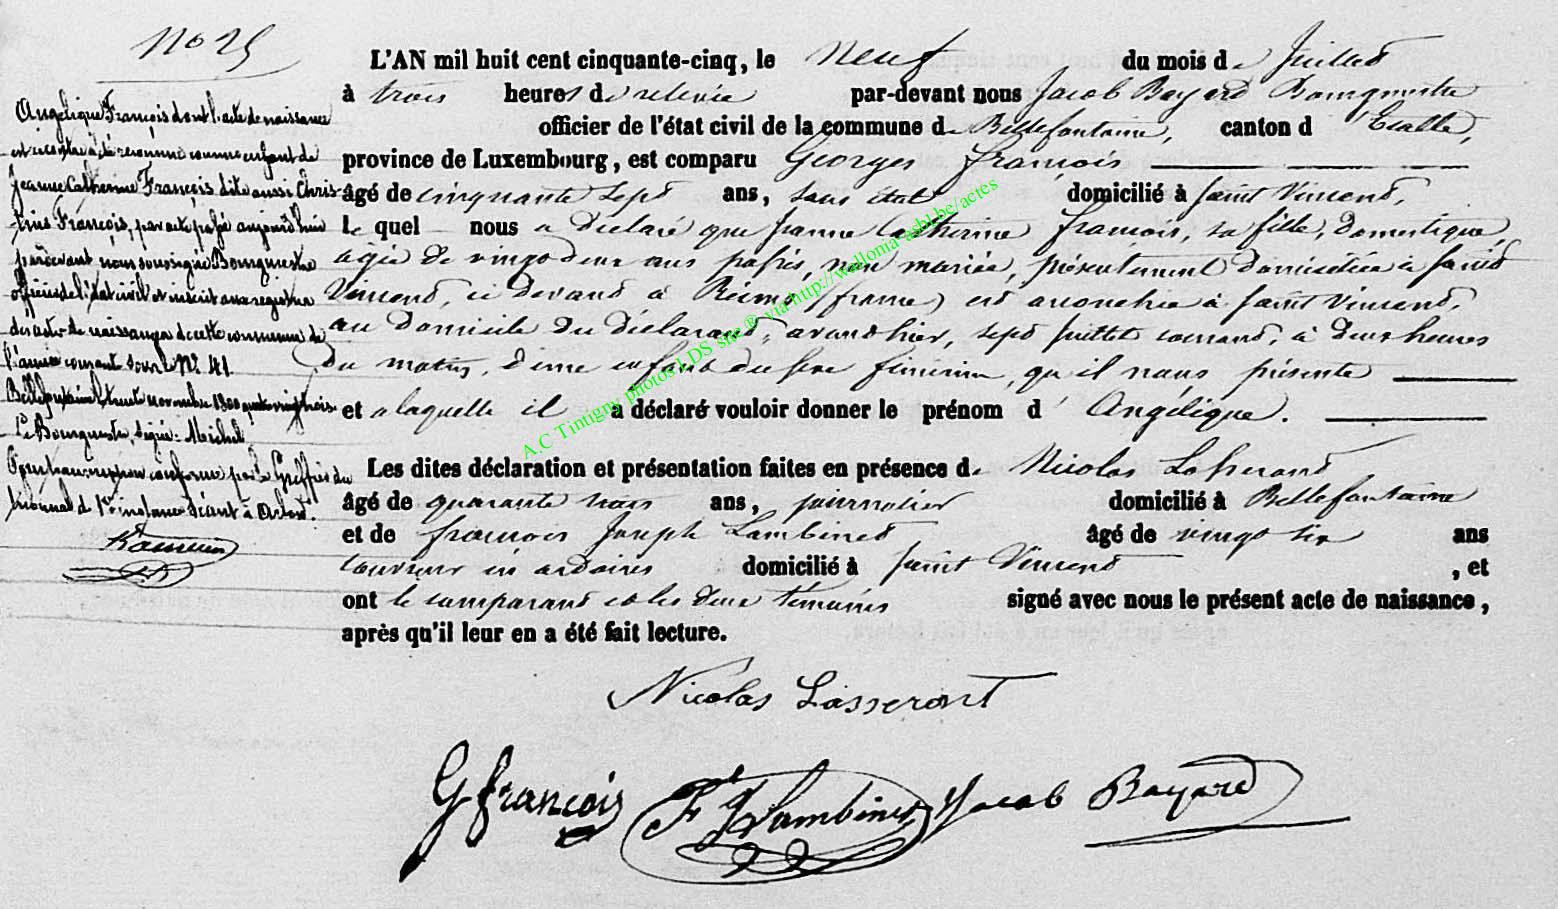 No 25
Angélique François dont l'acte de naissance
est ci contre a été reconnue comme enfant de
Jeanne Catherine François dite aussi Chris-
tine François, par acte passé aujourd'hui
pardevant nous soussigné Bourgmestre
officier de l'état civil et inscrit aux registres
des actes de naissances de cette commune de
l'année courante sous le No 41.
Bellefontaine le trente novembre 1800 quatre vingt trois
Le Bourgmestre, signé: Michel
Pour transcription conforme par le Greffier du
tribunal de 1re instance séant à Arlon.
L'AN mil huit cent cinquante-cinq, le neuf du mois de Juillet
à trois heures de relevée par-devant nous Jacob Bayard Bourgmestre
officier de l'état civil de la commune de Bellefontaine, canton d'Etalle,
province de Luxembourg, est comparu Georges françois
âgé de cinquante sept ans, sans état domicilié à Saint Vincent,
Le quel nous a déclaré que Jeanne Catherine françois, sa fille, domestique,
agée de vingt deux ans passés, non mariée, présentement domiciliée à Saint
Vincent, ci devant à Reims (france) est accouchée à Saint Vincent,
au domicile du déclarant, avant hier, sept Juillet courant, à deux heures
du matin, d'une enfant du sexe féminin, qu'il nous présente
et a laquelle il a déclaré vouloir donner le prénom d'Angélique.
Les dites déclaration et présentation faites en présence de Nicolas Lasserant
âgé de quarante trois ans, journalier domicilié à Bellefontaine
et de françois Joseph Lambinet âgé de vingt six ans
couvreur en ardoises domicilié à Saint Vincent, et
ont le comparant et les deux témoins signé avec nous le présent acte de naissance,
après qu'il leur en a été fait lecture.
Nicolas Lasseront
G françois F J Lambinet Jacob Bayard
A.C Tintigny photos LDS site ® via http://wallonia-asbl.be/actes